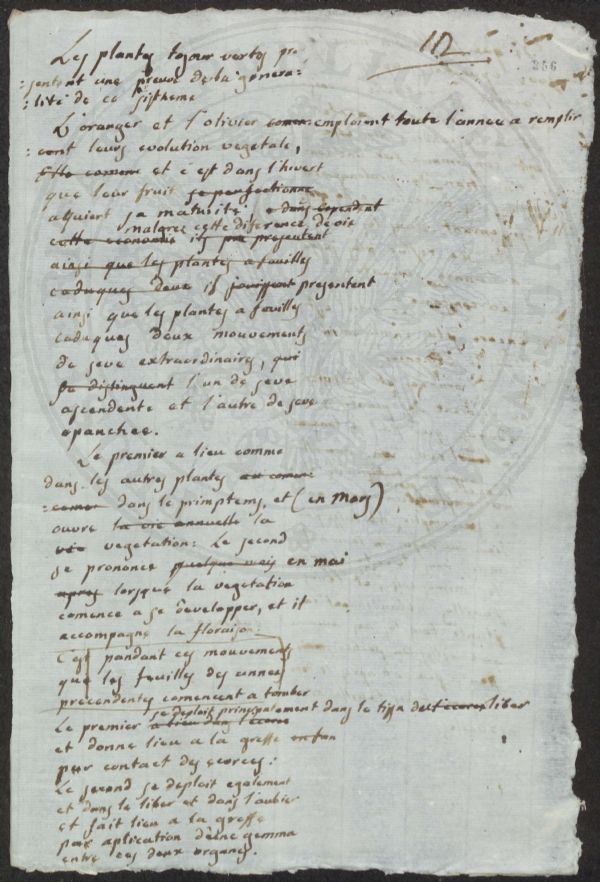 112
356
Les plantes tojour vertes pre
:sentent une preuve de la genera:
:lité de ce sistheme
L'oranger et l'olivier comen emploient toute l'annee a remplir
:cent leurs evolution vegetale,
Ette comene et c'est dans l'hivert
que leur fruit se perfectionne
aquiert sa maturité: e dans cependent
malgrez cette diference, de oie
cette economie ils pre presentent
ainsi que les plantes a feuilles
caduques deux if jouissent presentent
ainsi que les plantes a feuilles
caduques deux mouvements
de seve extraordinaires, qui
se distinguent l'un de seve
ascendente et l'autre de seve
epanchee.
Le premier a lieu comme
dans les autres plantes au comen:
:cemer dans le primptems, et (en mars)
ouvre la vie annuelle la
vie vegetation: Le second
se prononce quelque mois en mai
apres lorsque la vegetation
comence a se developper, et il
accompagne la floraison.
C'est pandant ces mouvements
que les feuilles des annees
precedentes comencent a tomber
se deploit principalement dans le tissu de l'ecorce liber
Le premier a lieu dans l'ecorce
et donne lieu a la greffe en fan
par contact des ecorces:
Le second se deploit egalement
et dans le liber et dans l'aubier
et fait lieu a la greffe
par aplication d'eine gemma
entre ces deux organes.